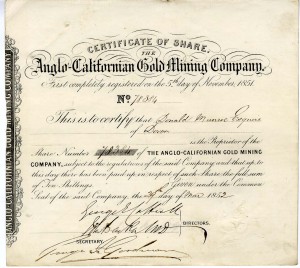 CERTIFICATE OF SHARE.
THE
Anglo-Californian Gold Mining Company.
First completely registered on the 5th day of November, 1851.
No
This is to certify that Donald Munro Esquire
of
is the Proprietor of the
Share Number of THE ANGLO-CALIFORNIAN GOLD MINING
COMPANY, subject to the regulations of the said Company and that up to
this day there has been paid up in respect of such Share the full sum
of Ten Shillings. Given under the Common
Seal of the said Company, the day of Mar 1852
DIRECTORS.
SECRETARY
ANGLO CALIFORNIAN GOLD MINING COMPANY